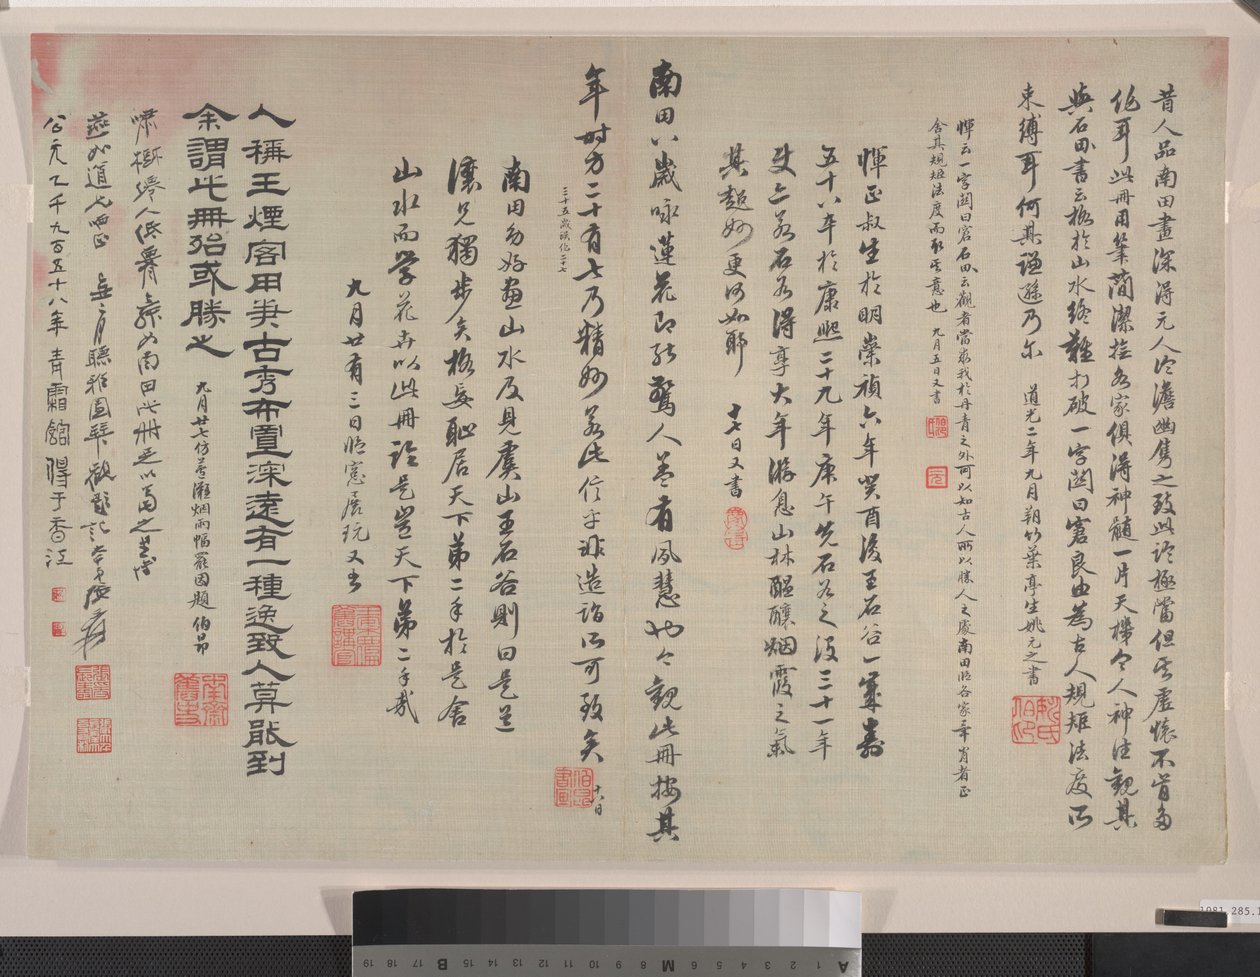 昔人品南田畫深得元人冷澹幽雋之致此論極當但其虛懷不肯多
作耳此冊用筆簡潔撫各家俱得神髓一片天機令人神往觀其
與石田書云格於山水終難打破一字關曰窘良由為古人規矩法度所
束縛耳何其謙遜乃尔 道光二年九月朔竹葉亭生姚元之書
惲云一字關曰窘石田云觀者當求我於丹青之外可以知古人所以勝人之處南田臨各家
舍其規矩法度而取其意也 九月五日又書
惲正叔生於明崇禎六年癸酉後王石谷一歲壽
五十八卒於康熙二十九年庚午先石谷之沒三十一年
使上若石谷得享大年游息山林醞釀烟霞之氣
其超妙更何如耶 十七日又書
南田八歲咏蓮花即能驚人蓋有夙慧也今觀此冊按其
年時方二十有七乃精妙若此信乎非造詣所可致矣 十八日
三十五歲誤作二十七
南田幼好畫山水及見虞山王石谷則曰是道
讓兄獨步矣格妄恥居天下第二手於是舍
山水而學花卉以此冊論是豈天下第二手哉
九月廿有三日臨窗展玩又書
人稱王煙客用筆古秀布置深遠有一種逸致人莫能到
余謂此冊殆或勝之
九月廿七仿 烟雨幅罷因題 伯昂
公元乙千九百五十八年 青霜館得于香江